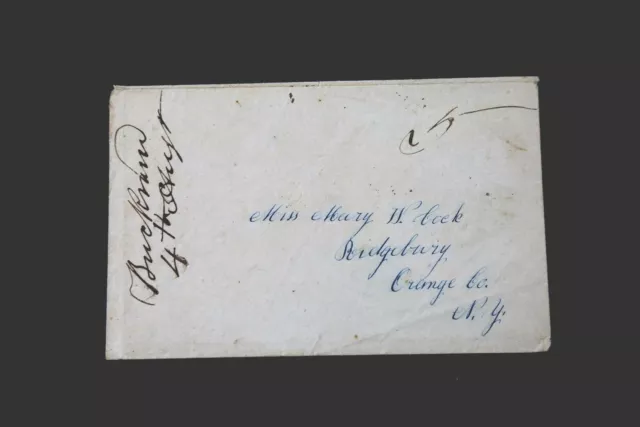 Buckram
4th Augt
5
Miss Mary W. Cock
Ridgebury
Orange Co.
N. Y.